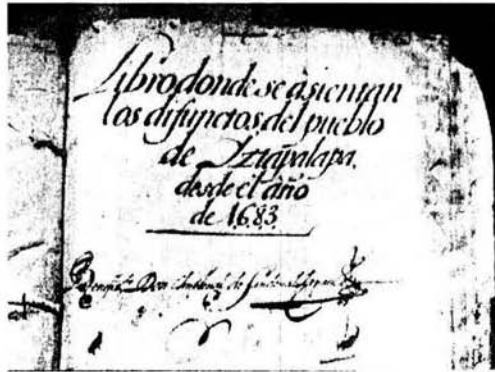 Libro donde se asientan
los difunctos del pueblo
de Iztapalapa.
desde el año
de 1683
Don de